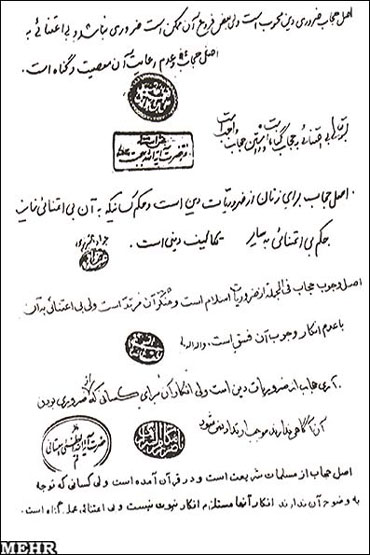 اصل حجاب ضروری دین محسوب است ولی بعض فروع آن ممکن است ضروری نباشد و بی اعتنائی به
اصل حجاب و عدم رعایت آن معصیت و گناه است.
بی اعتنائی به حجاب گناه است
دفتر حضرت آیة الله بهجت
اصل حجاب برای زنان از ضروریات دین است و حکم کسانیکه به آن بی اعتنائی نمایند
حکم بی اعتنائی به سایر تکالیف دینی است.
جواد تبریزی
اصل وجوب حجاب فی الجمله از ضروریات اسلام است و منکر آن مرتد است ولی بی اعتنائی به آن
با عدم انکار وجوب آن فسق است. والله العالم
آری حجاب از ضروریات دین است ولی انکار آن برای کسانی که از ضروری بودن
آن آگاهی ندارند موجب ارتداد نمی شود
ناصر مکارم الشیرازی
اصل حجاب از مسلمات شریعت است و در قرآن آمده است ولی کسانی که توجه
به وضوح آن ندارند انکار آنها مستلزم انکار نبوت نیست و بی اعتنائی عملی گناه است.
MEHR